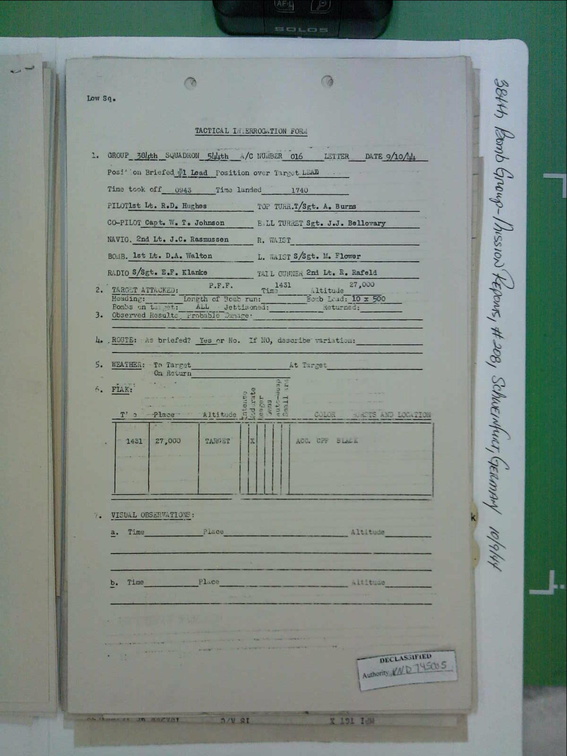 SOLOS
384th Bomb Group - Mission Reports, #208, Schweinfurt, Germany 10/9/44
Low Sq.
TACTICAL INTERROGATION FORM
1. GROUP 384th SQUADRON 544th A/C NUMBER 016 LETTER DATE 9/10/44
Position Briefed #1 Lead Position over Target LEAD
Time took off 0943 Time landed 1740
PILOT 1st Lt. R.D. Hughes TOP TURR. T/Sgt. A. Burns
CO-PILOT Capt. W. T. Johnson BALL TURRET Sgt. J.J. Bellovary
NAVIG. 2nd Lt. J.C. Rasmussen R. WAIST
BOMB. 1st Lt. D.A. Walton L. WAIST S/Sgt. M. Flower
RADIO S/Sgt. E.F. Klanke TAIL GUNNER 2nd Lt. R. Rafeld
P.F.F. 1431 27,000
2. TARGET ATTACKED: Time Altitude
Heading: Length of Bomb run: Bomb Load: 10 x 500
Bombs on target: ALL Jettisoned: Returned:
3. Observed Results Probable Damage:
4. ROUTE: As briefed? Yes or No. If NO, describe variation:
5. WEATHER: To Target At Target
On Return
6. FLAK:
Intense
Moderate
Meager
None
Small arms
Place Altitude COLOR ROUTE AND LOCATION
1431 27,000 TARGET X ACC. CPF BLACK
7. VISUAL OBSERVATIONS:
a. Time Place Altitude
b. Time Place Altitude
DECLASSIFIED
Authority NND 745005